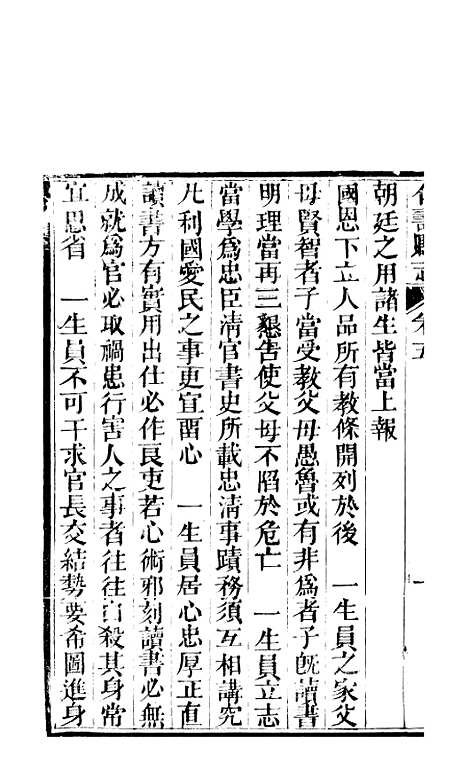 朝廷之用諸生皆當上報
國恩下立人品所有教條開列於後　一生員之家父
母賢智者子當受教父母愚魯或有非為者子旣讀書
明理當再三懇告使父母不陷於危亡　一生員立志
當學為忠臣清官書史所載忠清事蹟務須互相講究
凡利國愛民之事更宜畱心　一生員居心忠厚正直
讀書方有實用出仕必作良吏若心術邪刻讀書必無
成就為官必取禍患行害人之事者往往自殺其身常
宜思省　一生員不可干求官長交結勢要希圖進身